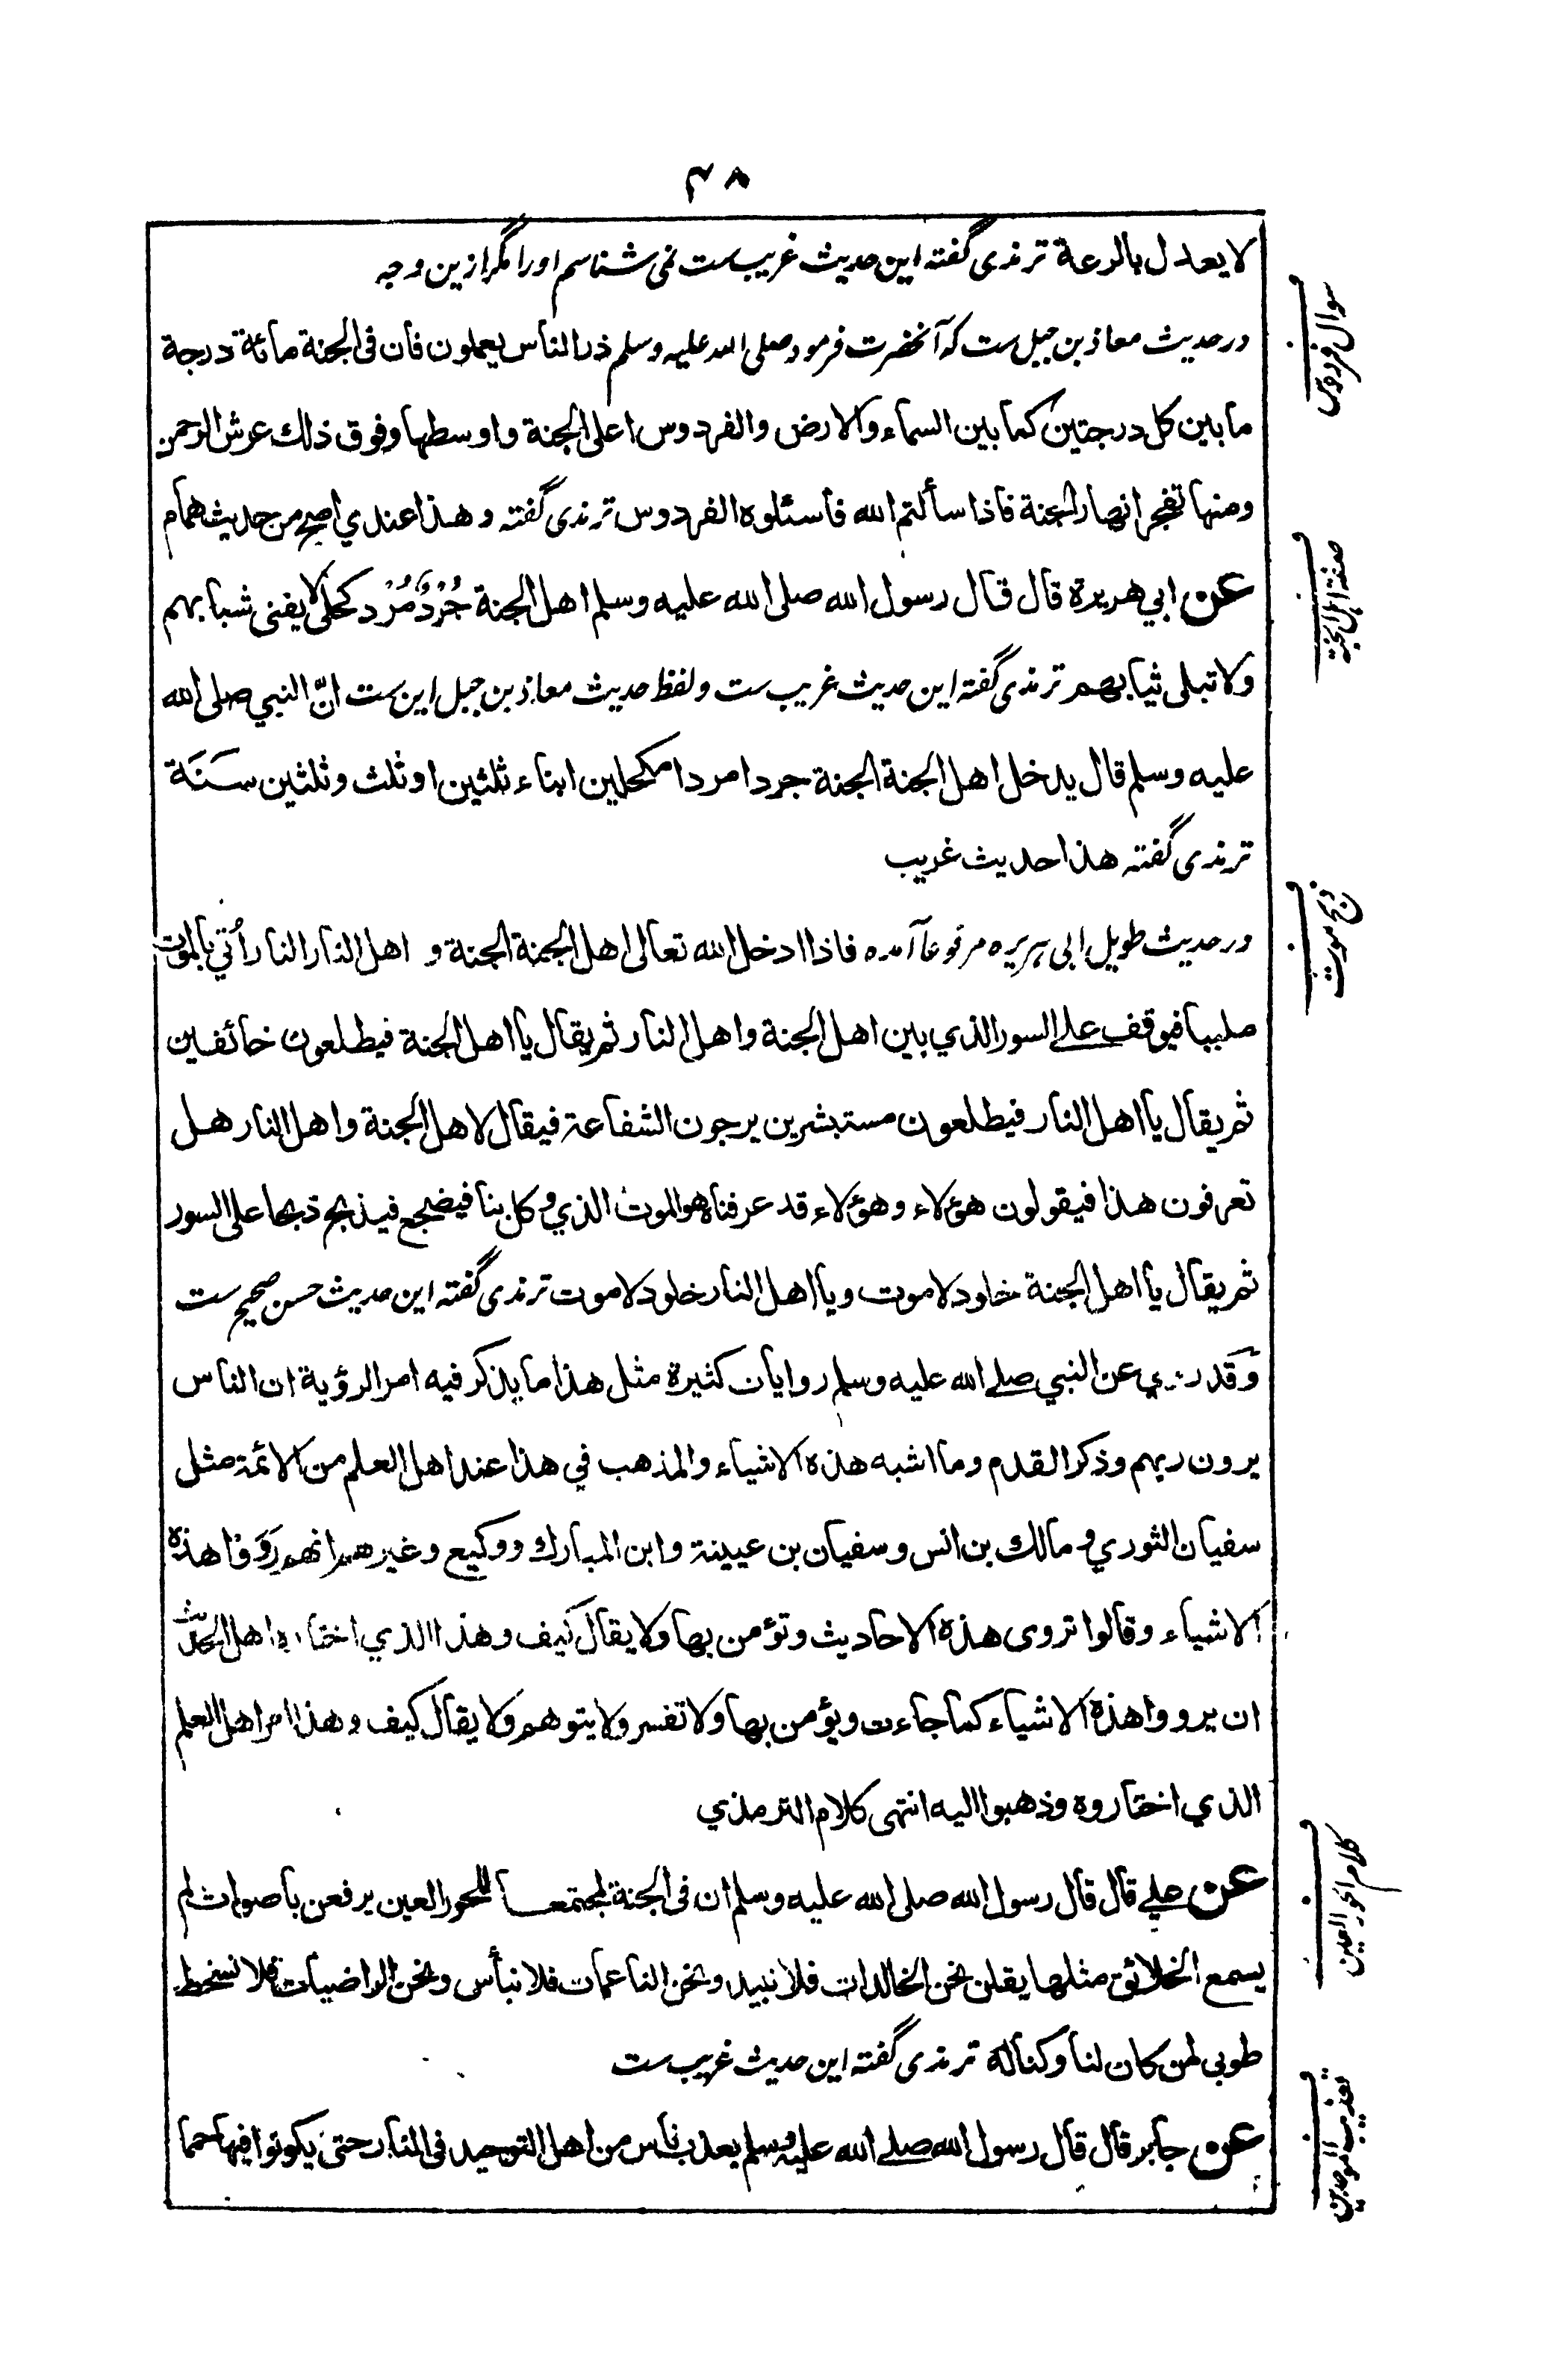 ۴۸
لا يعدل بالرعة ترمذی گفته این حدیث غریب ست نمی شناسم او را مگر ازین وجه
در حدیث معاذ بن جبل ست که آنحضرت فرمود صلی الله علیه وسلم ذر الناس يعملون فان فى الجنة مائة درجة
ما بين كل درجتين كما بين السماء والارض والفردوس اعلى الجنة واوسطها وفوق ذلك عرش الرحمن
ومنها تفجر انهار الجنة فاذا سألتم الله فأسئلوه الفردوس ترمذی گفته وهذا عندي اصح من حديث همام
عن ابي هريرة قال قال رسول الله صلى الله عليه وسلم اهل الجنة جُرْدٌ مُرْد كحلى لا يفنى شبابهم
ولا تبلى ثيابهم ترمذی گفته این حدیث غریب ست ولفظ حدیث معاذ بن جبل این ست انّ النبي صلى الله
عليه وسلم قال يدخل اهل الجنة الجنة جردا مردا مكحلين ابناء ثلثين او ثلث وثلثين سَنَة
ترمذی گفته هذا حديث غريب
در حدیث طویل ابی هریره مرفوعاً آمده فاذا ادخل الله تعالى اهل الجنة الجنة و اهل النار النار أُتي بالموت
ملببا فيوقف على السور الذي بين اهل الجنة واهل النار ثم يقال يا اهل الجنة فيطلعون خائفين
ثم يقال يا اهل النار فيطلعون مستبشرين يرجون الشفاعة فيقال لاهل الجنة واهل النار هل
تعرفون هذا فيقولون هؤلاء وهؤلاء قد عرفناه هو الموت الذي وكل بنا فيضجع فيذبح ذبحا على السور
ثم يقال يا اهل الجنة خلود لا موت ويا اهل النار خلود لا موت ترمذی گفته این حدیث حسن صحیح ست
وَقَد روي عن النبي صلى الله عليه وسلم روايات كثيرة مثل هذا ما يذكر فيه امر الرؤية ان الناس
يرون ربهم وذكر القدم وما اشبه هذه الاشياء والمذهب في هذا عند اهل العلم من الائمة مثل
سفيان الثوري ومالك بن انس وسفيان بن عيينة وابن المبارك ووكيع وغيرهم انهم رَوَوْا هذه
الاشياء وقالوا تروى هذه الاحاديث وتؤمن بها ولا يقال كيف وهذا الذي اختاره اهل الحديث
ان يرووا هذه الاشياء كما جاءت ويؤمن بها ولا تفسر ولا يتوهم ولا يقال كيف وهذا امر اهل العلم
الذي اختاروه وذهبوا اليه انتهى كلام الترمذي
عن علي قال قال رسول الله صلى الله عليه وسلم ان فى الجنة لمجتمعا للحور العين يرفعن بأصوات لم
يسمع الخلائق مثلها يقلن نحن الخالدات فلا نبيد ونحن الناعمات فلا نبأس ونحن الراضيات فلا نسخط
طوبى لمن كان لنا وكنا له ترمذی گفته این حدیث غریب ست
عن جابر قال قال رسول الله صلى الله عليه وسلم يعذب ناس من اهل التوحيد فى النار حتى يكونوا فيها حما
سوال فردوس
صفة اهل الجنة
ذبح موت
كلام الحور العين
تعذيب الموحدين